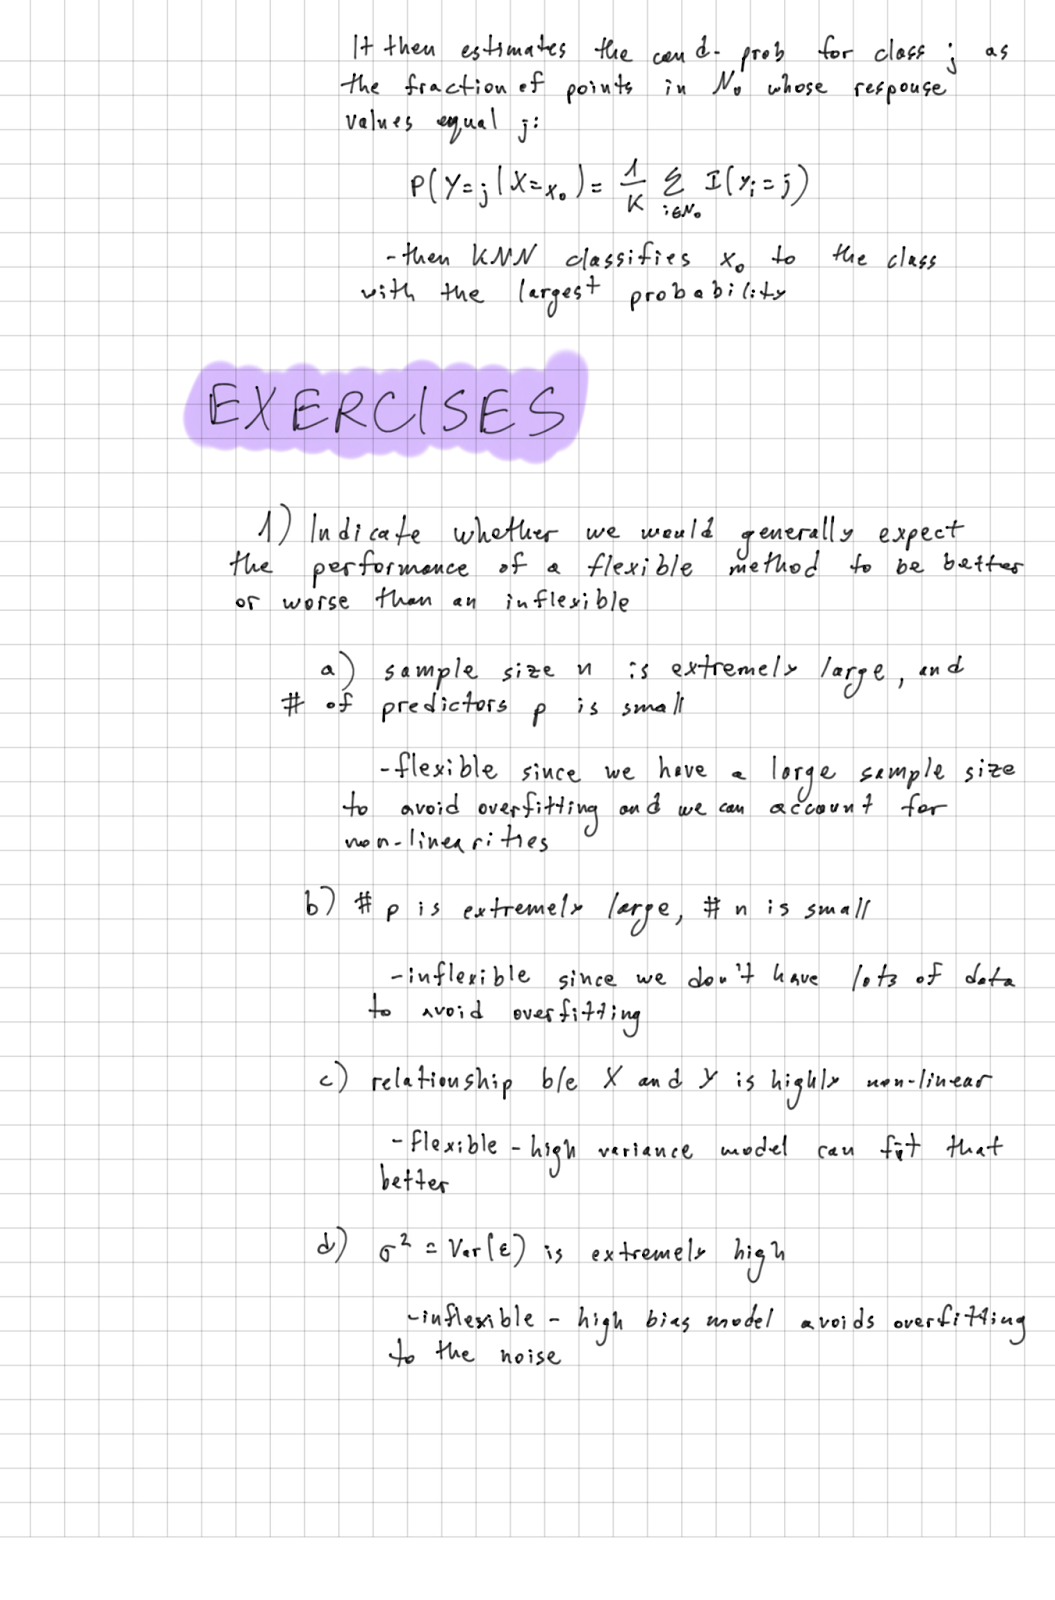 It then estimates the cond. prob for class j as
the fraction of points in N₀ whose response
values equal j:
P(Y=j|X=x₀) = 1/K Σ_{i∈N₀} I(yᵢ=j)
-then KNN classifies x₀ to the class
with the largest probability
EXERCISES
1) Indicate whether we would generally expect
the performance of a flexible method to be better
or worse than an inflexible
a) sample size n is extremely large, and
# of predictors p is small
-flexible since we have a large sample size
to avoid overfitting and we can account for
non-linearities
b) # p is extremely large, # n is small
-inflexible since we don't have lots of data
to avoid overfitting
c) relationship b/e X and Y is highly non-linear
-flexible - high variance model can fit that
better
d) σ² = Var(ε) is extremely high
-inflexible - high bias model avoids overfitting
to the noise